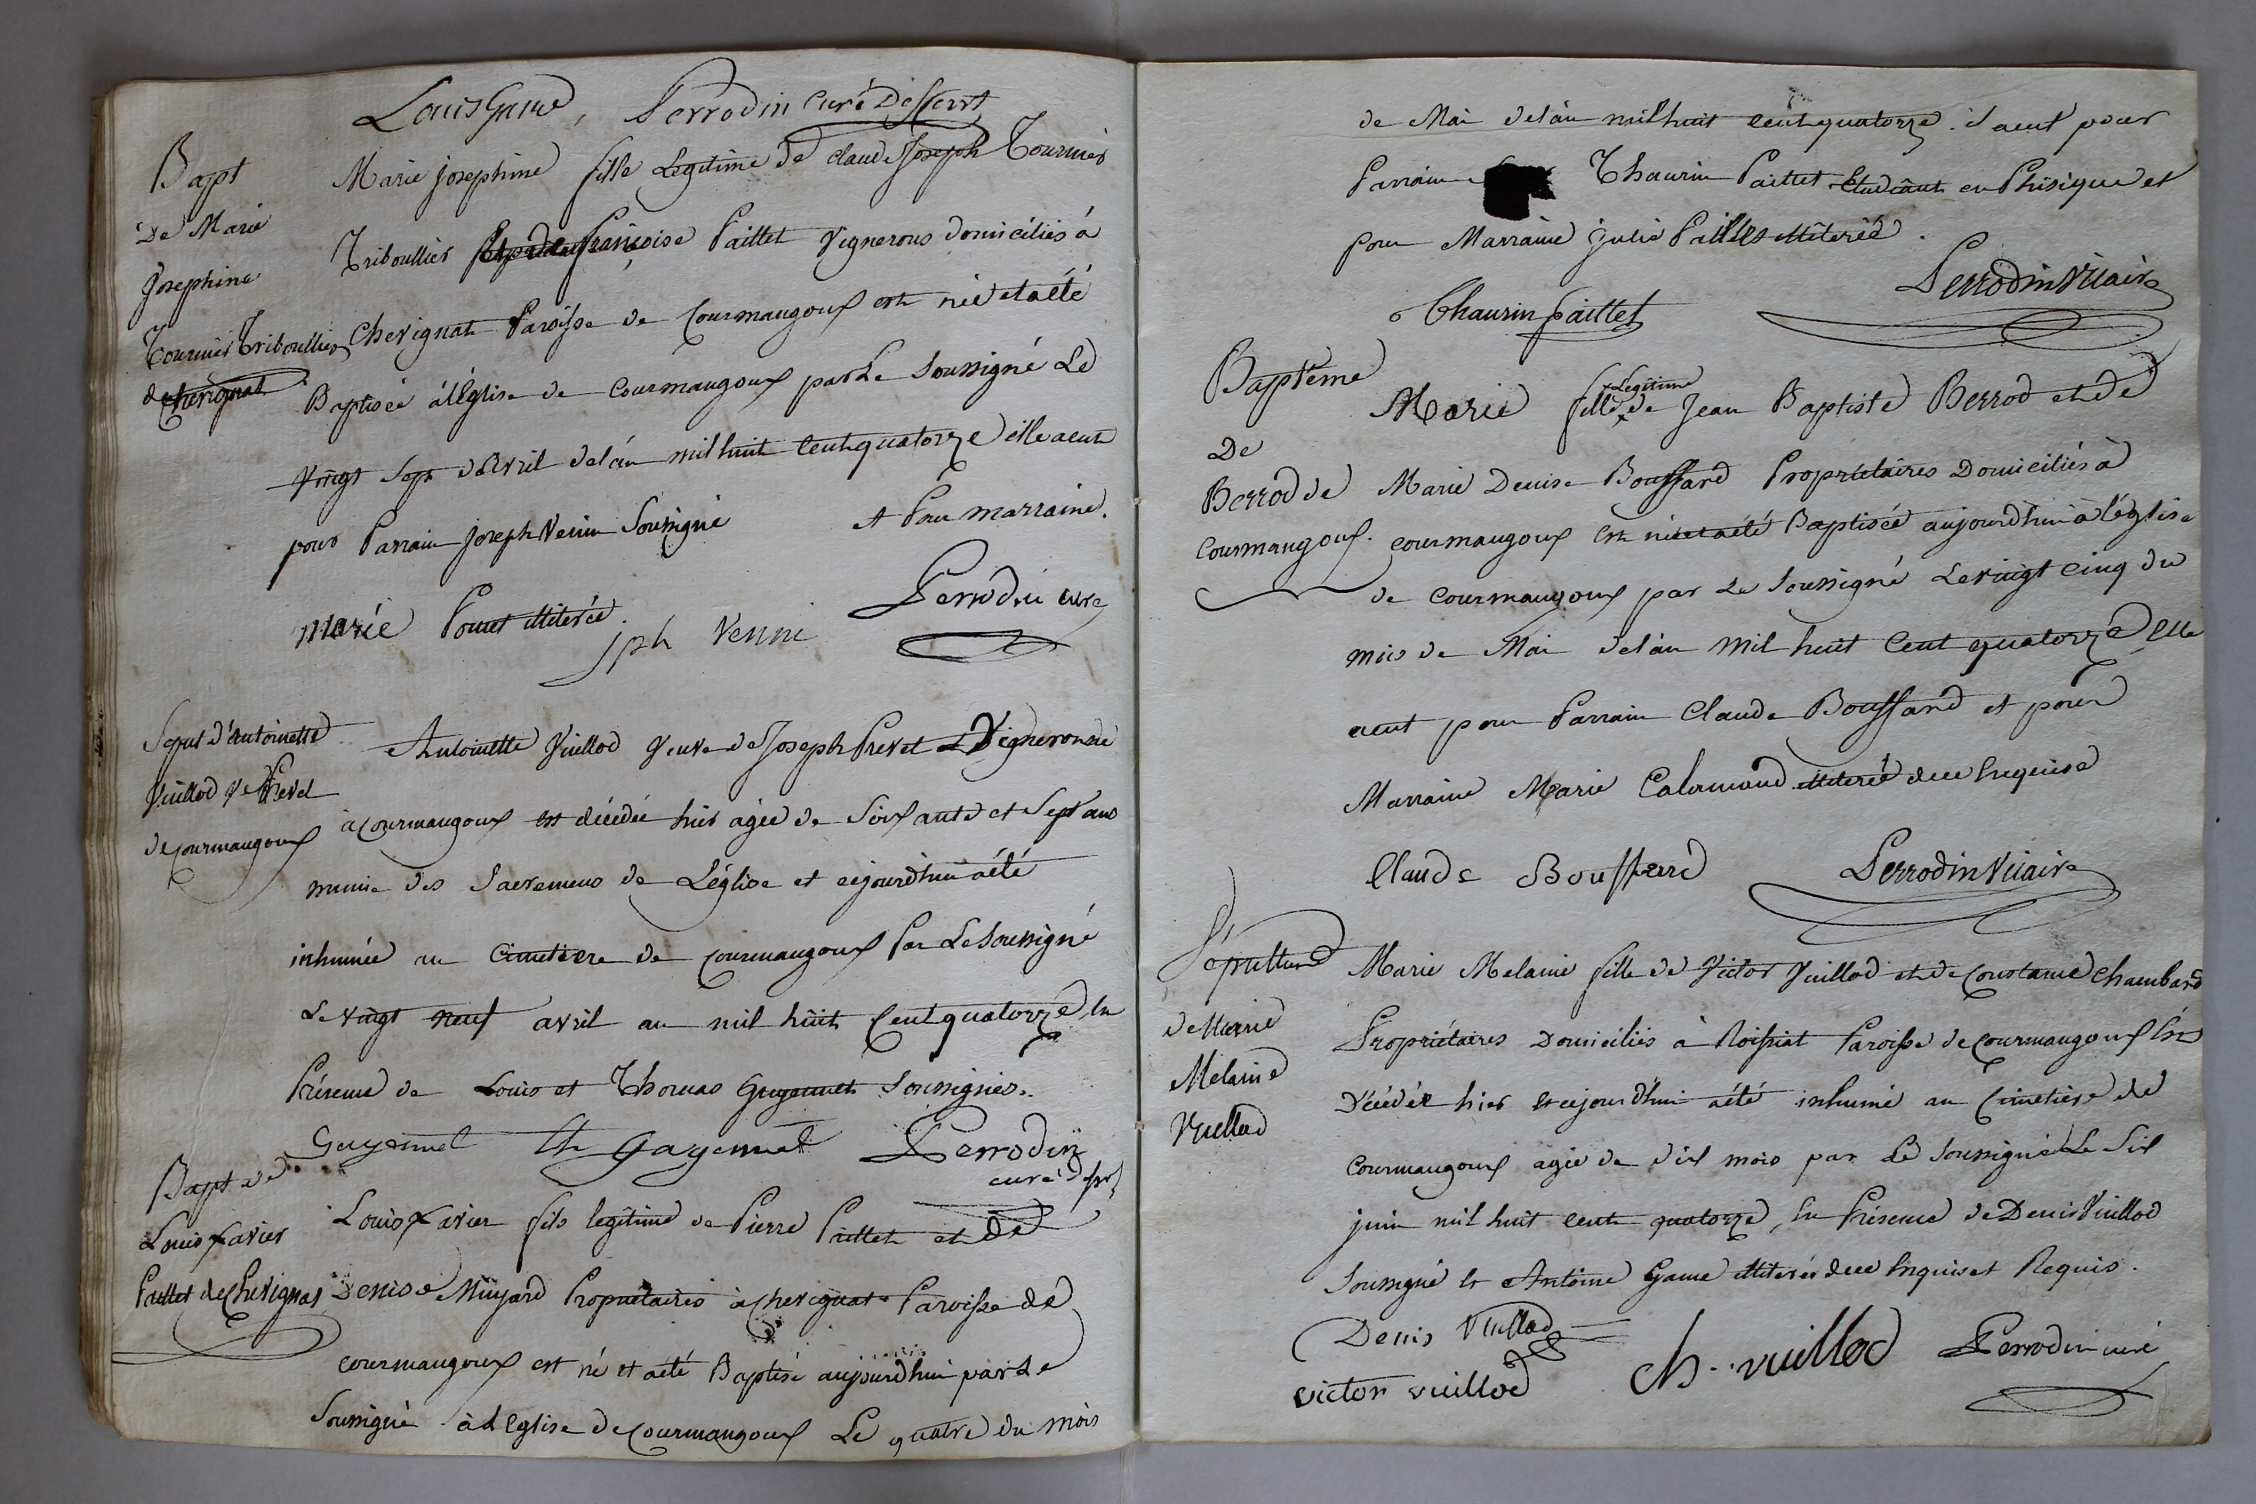 Louis Game, Perrodin curé Desserv.t
Bapt
De Marie
Josephine
Tournier Triboullier
de Cherignat
Marie josephine fille Legitime de claude Joseph Tournier
Triboullier françoise Paillet Vignerons domiciliés à
Chevignat Paroisse de Courmangoux est née et a été
Baptisée à l'Eglise de Courmangoux par Le Soussigné Le
Vingt Sept d'Avril de l'an mil huit Cent quatorze elle a eut
pour Parrain joseph Venin Soussigné et Pour marraine.
Marie Ponet illiterée.
Jph Venni Perrodin curé
Sepul d'Antoinette
Vuillod Ve Prevel
de courmangoux
Antoinette Vuillod Veuve de Joseph Prevel Vigneronne
à Courmangoux est décédée hier agée de Soixante et Sept ans
munie des Sacremens de L'église et cejourd'hui a été
inhumée au Cimetiere de Courmangoux Par Le Soussigné
Le vingt neuf avril an mil huit Cent quatorze, En
Présence de Louis et Thomas Guyennet Soussignés.
Guyennet th Gayennet Perrodin
curé desst
Bapt de
Louis Xavier
Paillet de Chevignat
Louis Xavier fils legitime de Pierre Paillet et de
Denise Mũyard Propriétaires à Chevignat Paroisse de
courmangoux est né et a été Baptisé aujourd'hui par Le
Soussigné à L'Eglise de Courmangoux Le quatre du mois
de Mai de l'an mil huit cent quatorze. il a eut pour
Parrain Thaurin Paillet Etudiant en Phisique et
pour Marraine julie Paillet illiterée.
Thaurin paillet Perrodin Vicaire
Baptême
De
Berrod de
Courmangoux.
Marie fille Legitime de Jean Baptiste Berrod et de
Marie Denise Bouffard Propriétaires Domiciliés à
courmangoux est née et a été Baptisée aujourd'hui à l'église
de Courmangoux par Le Soussigné Le vingt cinq du
mois de Mai de l'an Mil huit Cent quatorze, Elle
a eut pour Parrain Claude Bouffard et pour
Marraine Marie Calamand illiterée de ce Enquise
Claude Boufferd Perrodin Vicaire
Sépulture
de Marie
Melanie
Vuillod
Marie Melanie fille de Victor Vuillod et de Constance Chambard
Propriétaires Domiciliés à Roissiat Paroisse de Courmangoux Est
Décédée hier et cejourd'hui a été inhumé au Cimetière de
Courmangoux agée de dix mois par Le Soussigné Le Six
juin mil huit cent quatorze, En Présence de Denis Vuillod
Soussigné et Antoine Game illiterés de ce Enquis et Requis.
Denis Vuillod
victor vuillod Ch. vuillod Perrodin curé